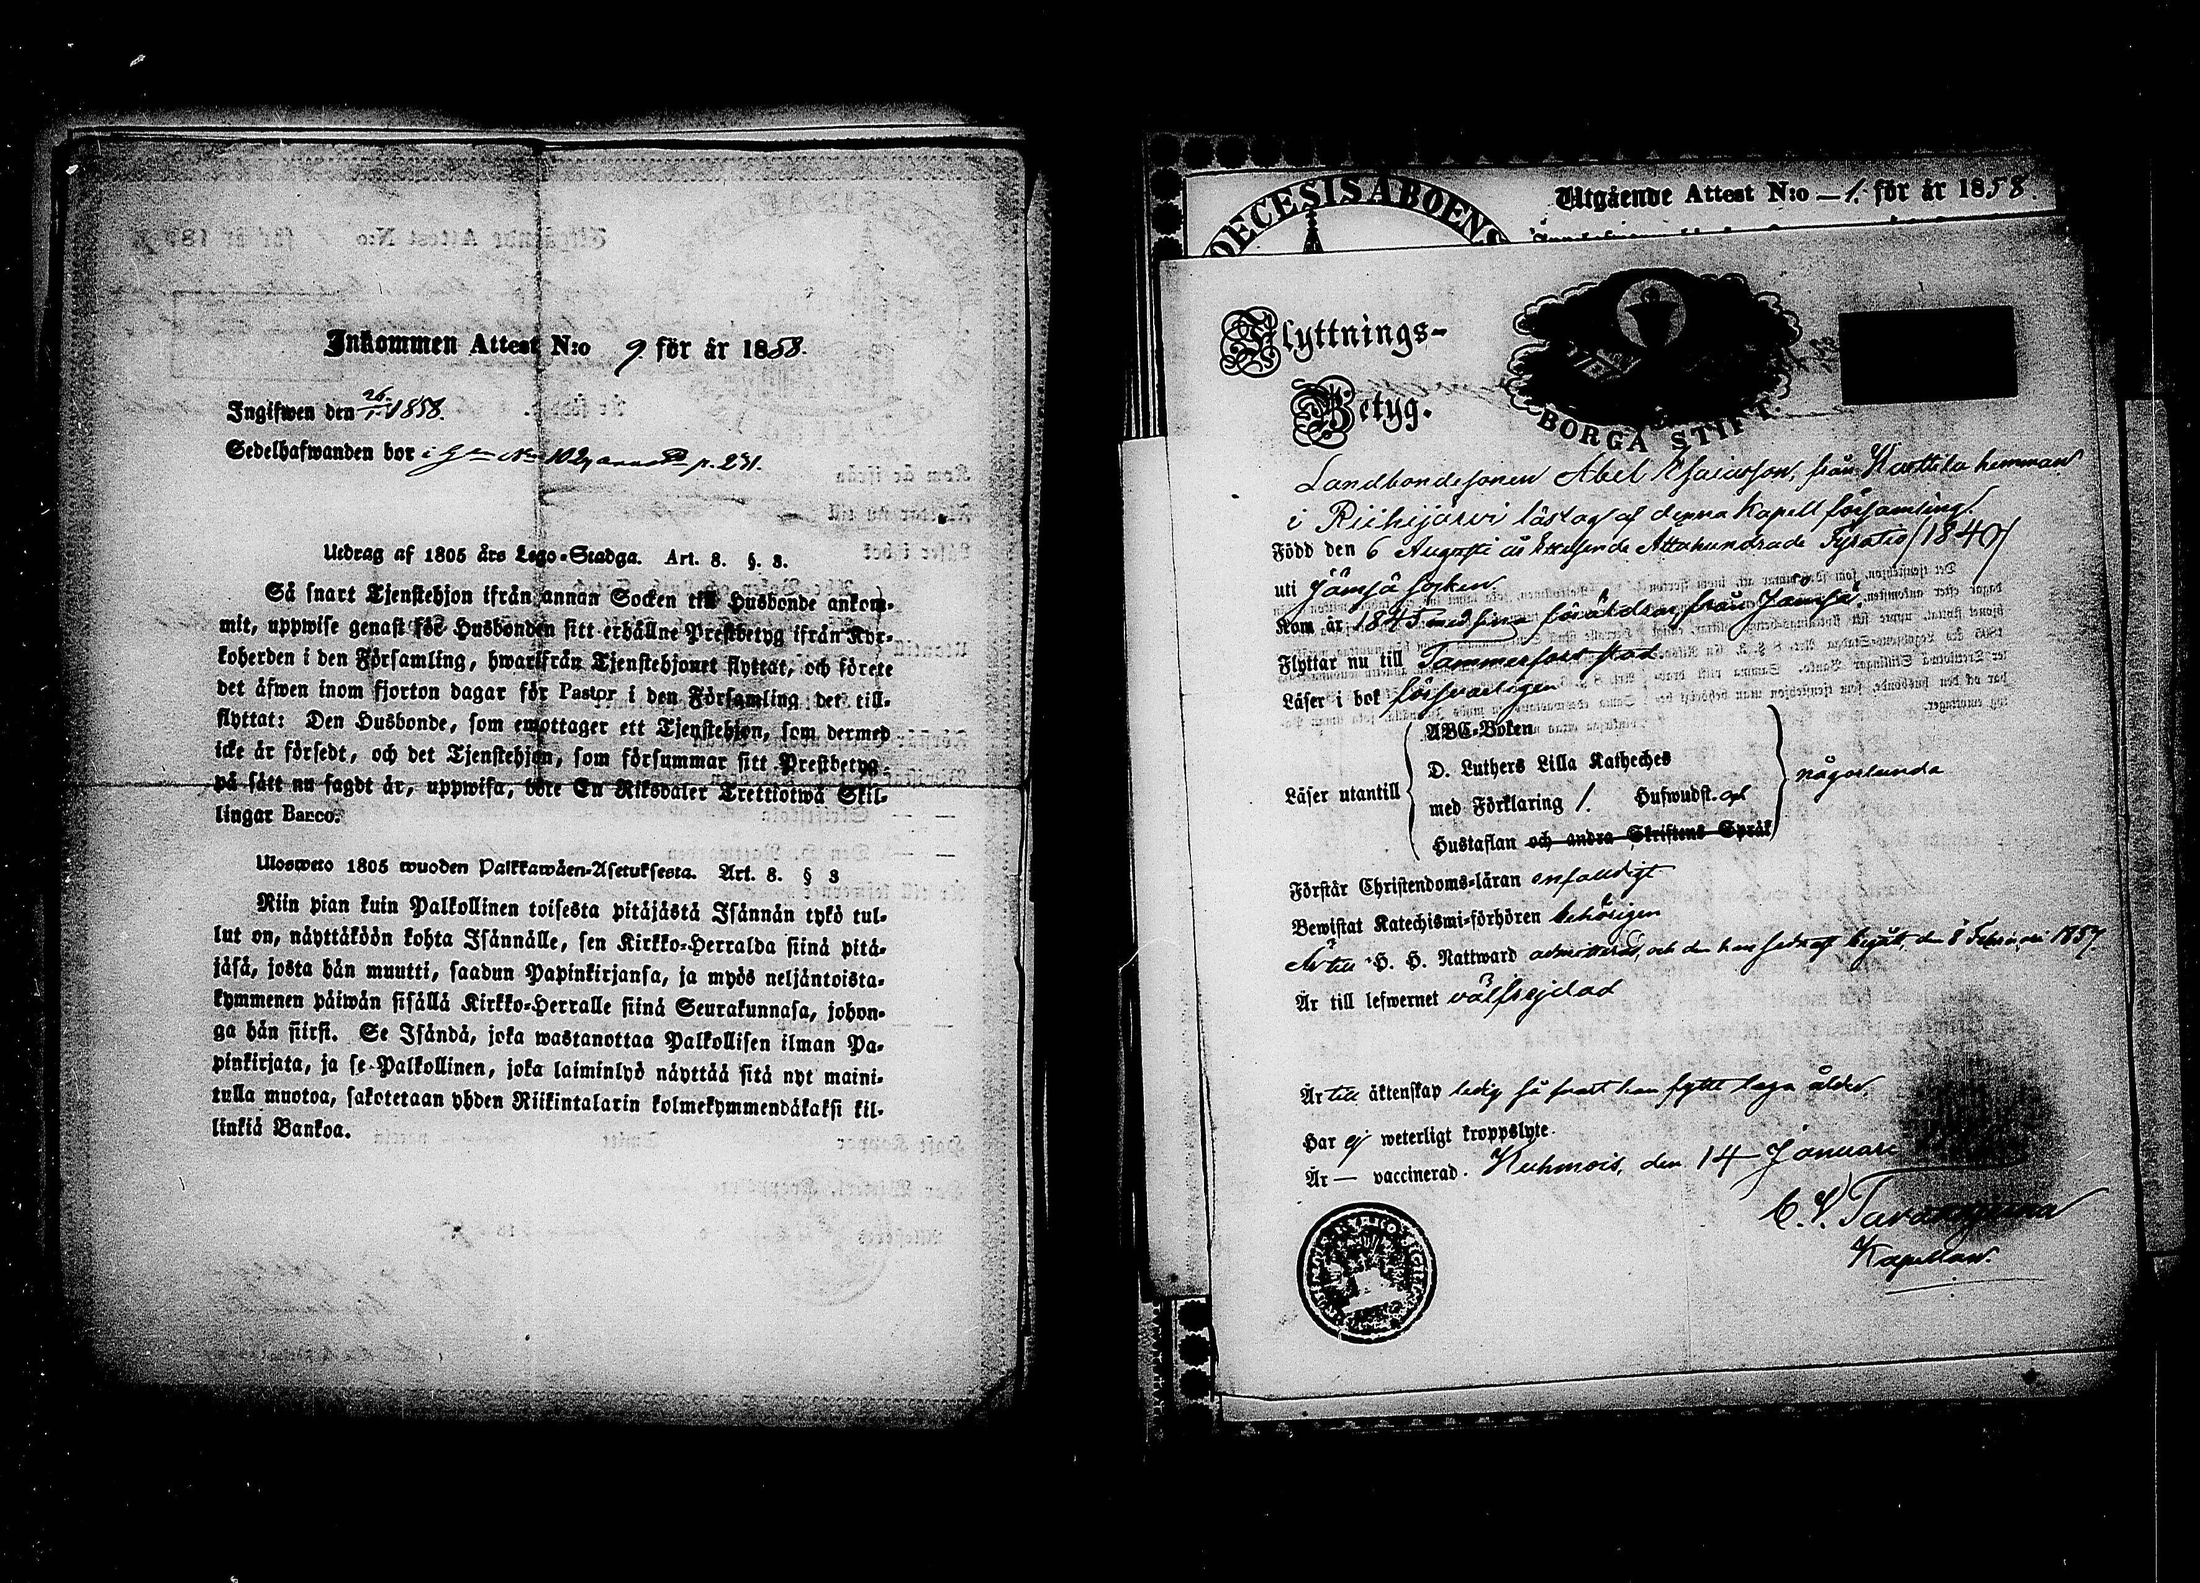 Inkommen Attest N:o 9 för år 1858.
Ingifwen den 26/1 1858.
Sedelhafwanden bor i p. 231.
Utdrag af 1805 års Lego-Stadga. Art. 8. §. 3.
Så snart Tjenstehjon ifrån annan Socken till Husbonde ankom-
mit, uppwise genast för Husbonden sitt erhållne Prestbetyg ifrån Kyr-
koherden i den Församling, hwarifrån Tjenstehjonet flyttat, och förete
det äfwen inom fjorton dagar för Pastor i den Församling det till-
flyttat: Den Husbonde, som emottager ett Tjenstehjon, som dermed
icke är försedt, och det Tjenstehjon, som försummar sitt Prestbetyg,
på sätt nu sagdt är, uppwisa, böte En Riksdaler Trettiotwå Skil-
lingar Banco.
Ulosweto 1805 wuoden Palkkawäen-Asetuksesta. Art. 8. § 3
Niin pian kuin Palkollinen toisesta pitäjästä Isännän tykö tul-
lut on, näyttäköön kohta Isännälle, sen Kirkko-Herralda siinä pitä-
jäsä, josta hän muutti, saadun Papinkirjansa, ja myös neljäntoista-
kymmenen päiwän sisällä Kirkko-Herralle siinä Seurakunnasa, johon-
ga hän siirsi. Se Isändä, joka wastanottaa Palkollisen ilman Pa-
pinkirjata, ja se Palkollinen, joka laiminlyö näyttää sitä nyt maini-
tulla muotoa, sakotetaan yhden Riikintalarin kolmekymmendäkaksi kil-
linkiä Bankoa.
Utgående Attest N:o 1. för år 1858.
DECESIS ÅBOENS
Flyttnings-
Betyg.
BORGÅ STIFT.
Landbondesonen Abel Esaiasson, från Karttila hemman
i Riihijärvi låstag af denna Kapell församling.
Född den 6 Augusti år Ettusende Attahundrade Fyratio (1840)
uti Jämsä socken
Kom år 1845 med sina föräldrar från Jämsä.
Flyttar nu till Tammerfors stad
Läser i bok försvarligen
Läser utantill
ABC-Boken
D. Luthers Lilla Katheches
med Förklaring 1. Hufwudst. och
Hustaflan och andra Skriftens Språk
någorlunda
Förstår Christendoms-läran enfaldigt
Bewistat Katechismi-förhören behörigen
Är till H. H. Nattward admitterad, och den han sednast begått den 8 Februari 1857
Är till lefwernet välfrejdad
Är till äktenskap ledig så snart han fyllt laga ålder.
Har ej weterligt kroppslyte.
Är — vaccinerad. Kuhmois, den 14 Januari
C. V.
Kapellan.